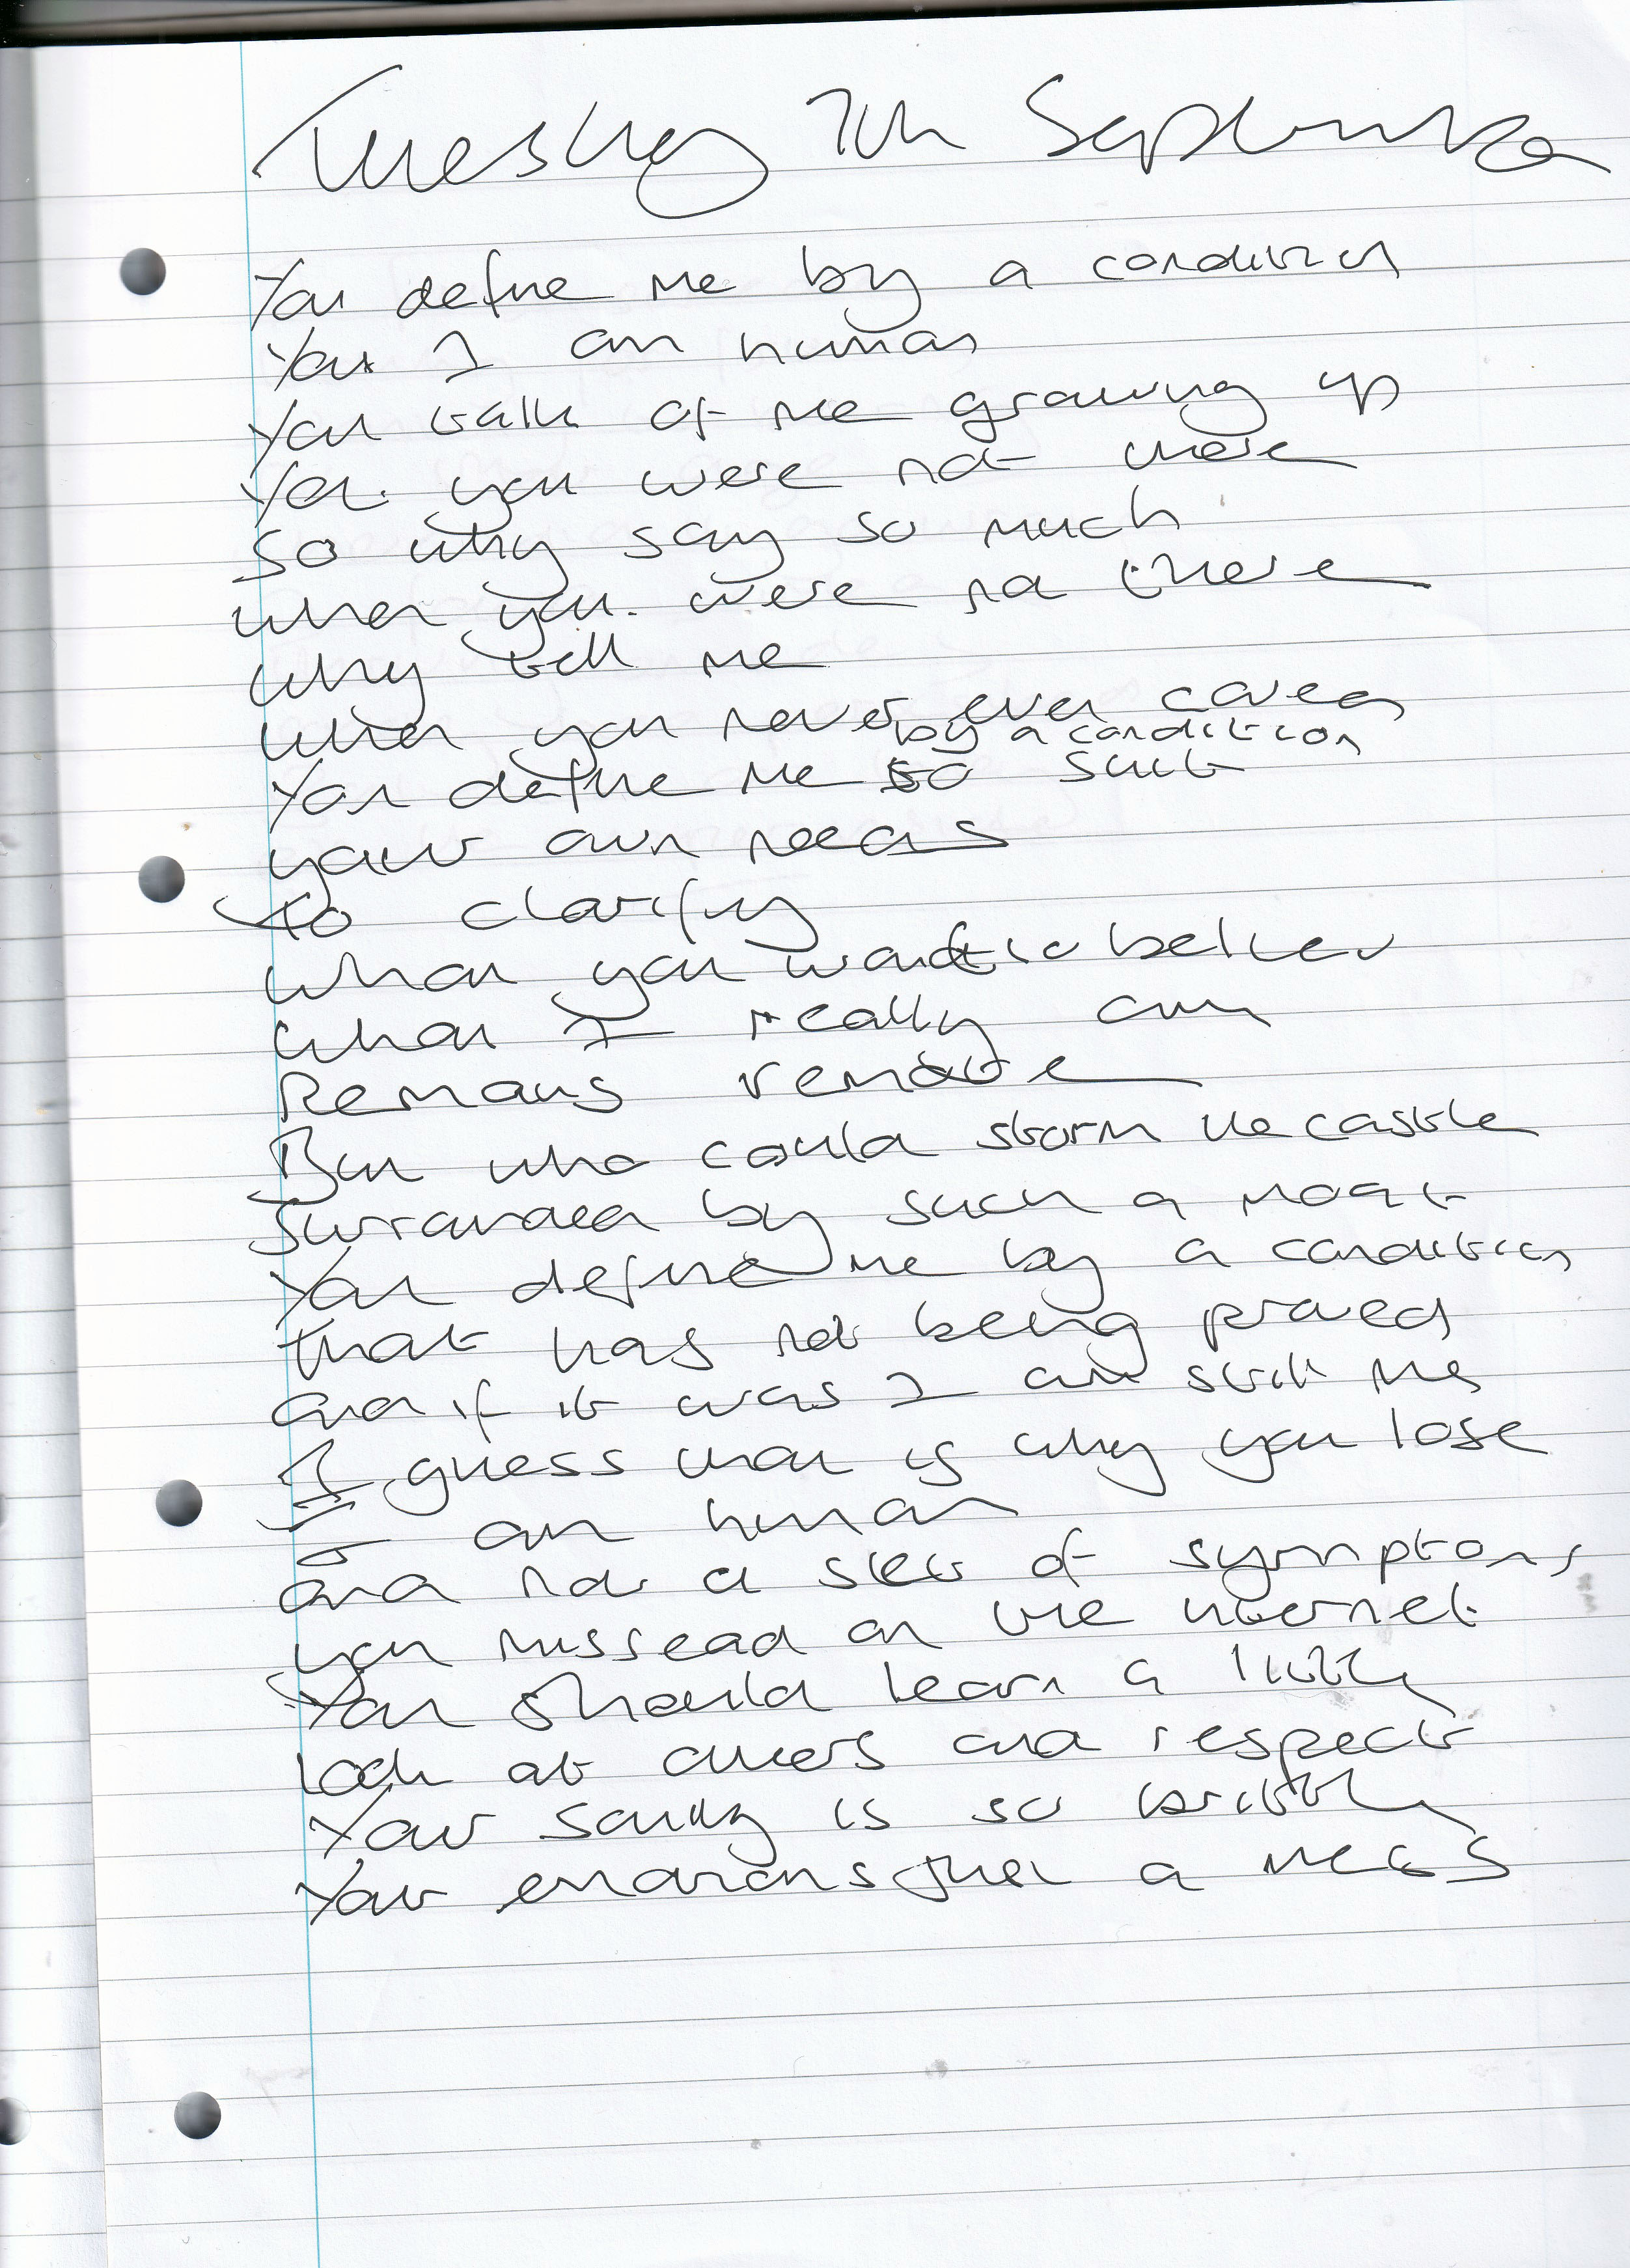 Tuesday 7th September
You define me by a condition
Yet I am human
You talk of me growing up
Yet you were not there
So why say so much
when you were not there
Why tell me
When you never ever cared
by a condition
You define me to suit
your own needs
to clarify
What you want to believe
What I really am
Remains remote
But who could storm the castle
Surrounded by such a moat
You define me by a condition
that has not being proved
and if it was I am still me
I guess that is why you lose
I am human
and not a set of symptoms
you missread on the internet
You should learn a little
look at others and respect
Your sanity is so brittle
Your emotions just a mess